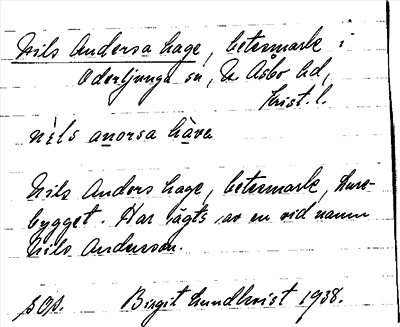 Nils Andersa hage, betesmark i
Oderljunga sn, N Åsbo hd,
Krist. l.
nils anorsa hava
Nils Anders hage, betesmark,
bygget. Har ägts av en vid namn
Nils Andersson.
sop. Birgit Lundkvist 1938.